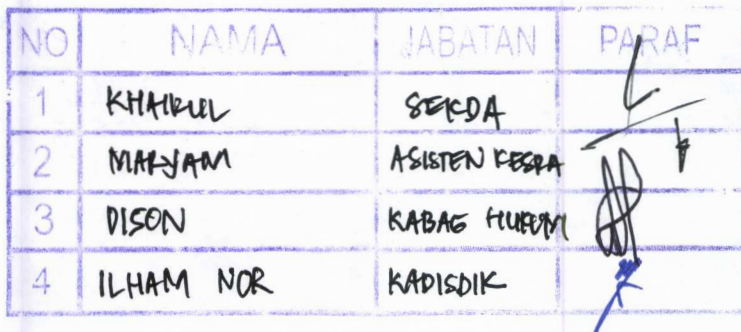 NO NAMA JABATAN PARAF
1 KHAIRUL SEKDA
2 MARYAM ASISTEN KESRA
3 DISON KABAG HUKUM
4 ILHAM NOR KADISDIK